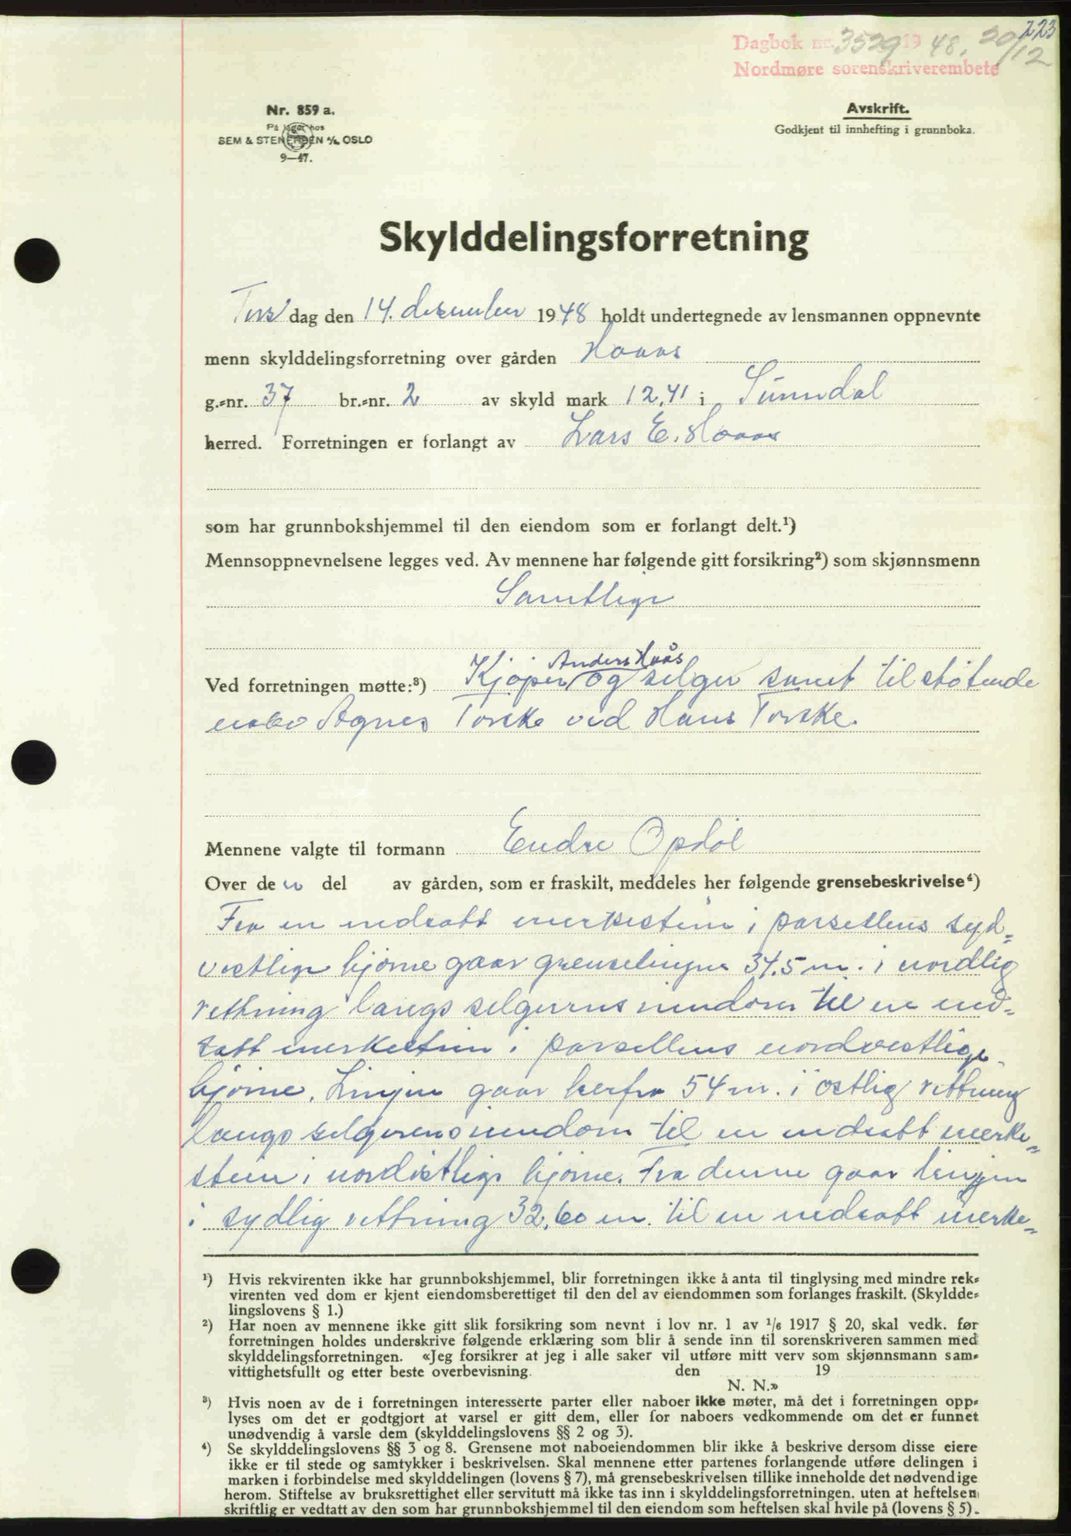 223
Dagbok nr. 3529 1948. 20/12
Nordmøre sorenskriverembete
Nr. 859 a.
På lager hos
SEM & STENERSEN A/S, OSLO
9—47.
Avskrift.
Godkjent til innhefting i grunnboka.
Skylddelingsforretning
Tirsdag den 14. desember 1948 holdt undertegnede av lensmannen oppnevnte
menn skylddelingsforretning over gården Hoaas
g.-nr. 37 br.-nr. 2 av skyld mark 12,41 i Sunndal
herred. Forretningen er forlangt av Lars E. Hoaas
som har grunnbokshjemmel til den eiendom som er forlangt delt.¹)
Mennsoppnevnelsene legges ved. Av mennene har følgende gitt forsikring²) som skjønnsmenn
Samtlige
Anders Hoås
Ved forretningen møtte:³) Kjøper og selger samt tilstøtende
nabo Agnes Torske ved Hans Torske.
Mennene valgte til formann Endre Opdøl
Over den del av gården, som er fraskilt, meddeles her følgende grensebeskrivelse⁴)
Fra en nedsatt merkestein i parsellens syd-
vestlige hjørne gaar grenselinjen 34.5 m. i nordlig
rettning langs selgerens eiendom til en ned-
satt merkestein i parsellens nordvestlige
hjørne. Linjen gaar herfra 54 m. i østlig rettning
langs selgerens eiendom til en nedsatt merke-
stein i nordøstlige hjørne. Fra denne gaar linjen
i sydlig rettning 32,60 m. til en nedsatt merke-
¹) Hvis rekvirenten ikke har grunnbokshjemmel, blir forretningen ikke å anta til tinglysing med mindre rek-
virenten ved dom er kjent eiendomsberettiget til den del av eiendommen som forlanges fraskilt. (Skyldde-
lingslovens § 1.)
²) Har noen av mennene ikke gitt slik forsikring som nevnt i lov nr. 1 av 1/6 1917 § 20, skal vedk. før
forretningen holdes underskrive følgende erklæring som blir å sende inn til sorenskriveren sammen med
skylddelingsforretningen. «Jeg forsikrer at jeg i alle saker vil utføre mitt verv som skjønnsmann sam-
vittighetsfullt og etter beste overbevisning. den 19
N. N.»
³) Hvis noen av de i forretningen interesserte parter eller naboer ikke møter, må det i forretningen opp-
lyses om det er godtgjort at varsel er gitt dem, eller for naboers vedkommende om det er funnet
unødvendig å varsle dem (skylddelingslovens §§ 2 og 3).
⁴) Se skylddelingslovens §§ 3 og 8. Grensene mot naboeiendommen blir ikke å beskrive dersom disse eiere
ikke er til stede og samtykker i beskrivelsen. Skal mennene etter partenes forlangende utføre delingen i
marken i forbindelse med skylddelingen (lovens § 7), må grensebeskrivelsen tillike inneholde det nødvendige
herom. Stiftelse av bruksrettighet eller servitutt må ikke tas inn i skylddelingsforretningen. uten at heftelsen
skriftlig er vedtatt av den som har grunnbokshjemmel til den eiendom som heftelsen skal hvile på (lovens § 5).